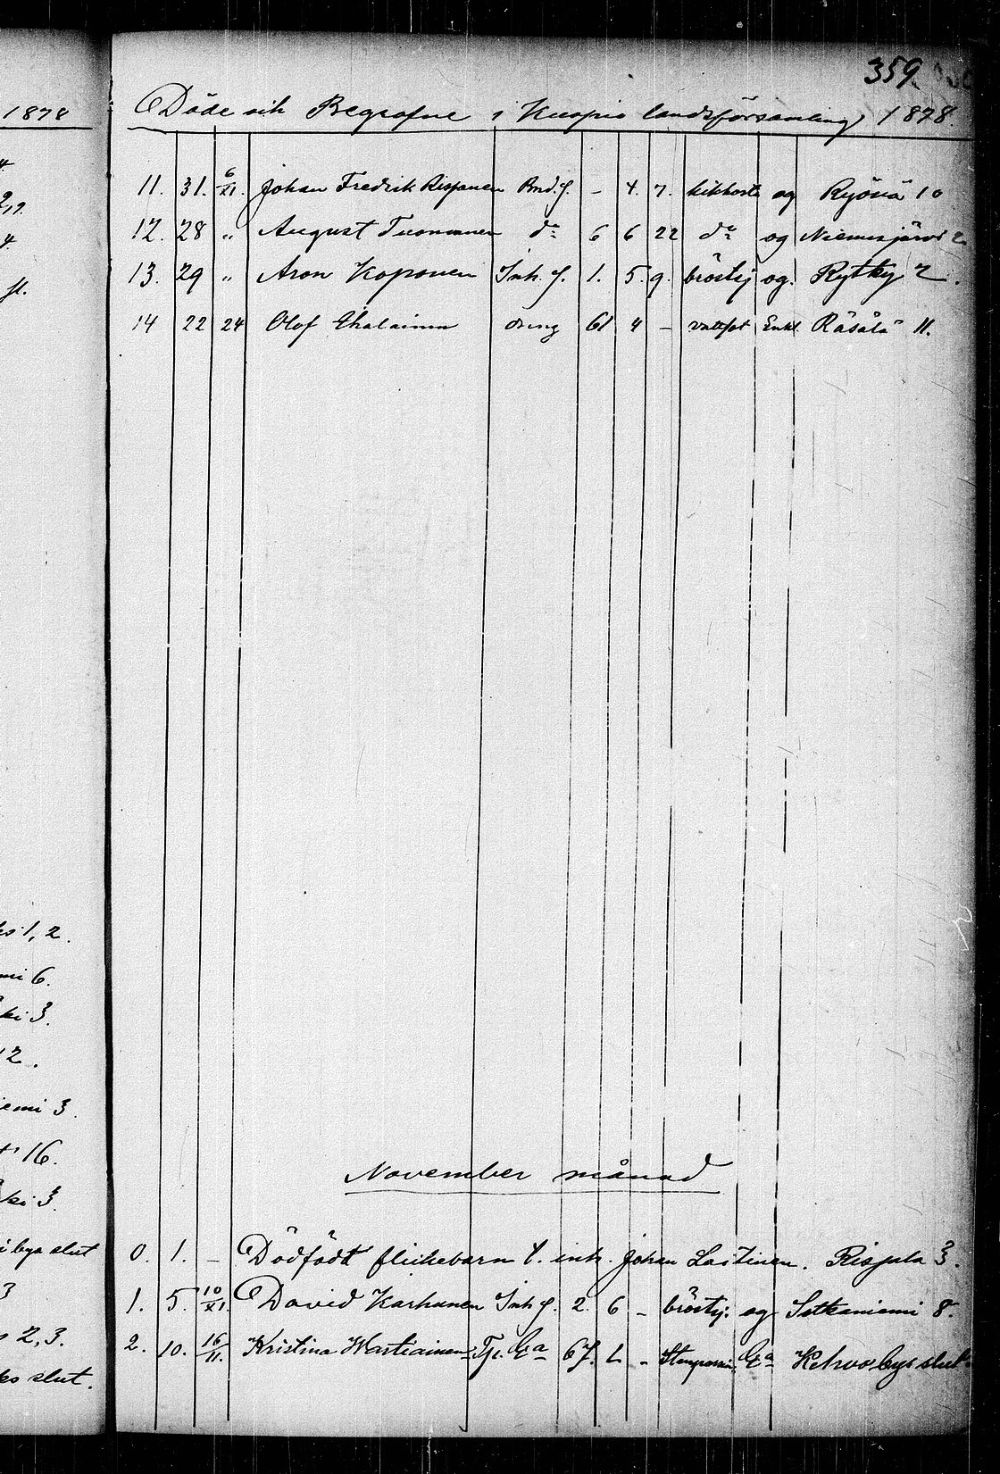 1878
4
4
1, 2.
mi 6.
ki 3.
12.
iemi 3.
16.
ki 3.
i bys slut
3
2, 3.
slut.
359.
Döde och Begrafne i Kuopio landsförsamling 1878.
11. 31. 6/XI. Johan Fredrik Rissanen Bnd.f. - 4. 7. kikhosta og Ryönä 10
12. 28 " August Tuomainen do 6 6 22 do og Niemisjärvi 2.
13. 29 " Aron Koponen Inh. f. 1. 5. 9. bröstsj og. Rytky 2.
14 22 24 Olof Ihalainen dreng 61 4 - vattsot Enkl Räsälä 11.
November månad
0. 1. - Dödfödt flickebarn t. inh. Johan Laitinen. Rispala 3.
1. 5. 10/XI. David Karhunen Inh f. 2. 6 - bröstsj. og Sotkaniemi 8.
2. 10. 16/11. Kristina Wartiainen Tjt. Ea 67. 2 - Ea Kehvo bys slut